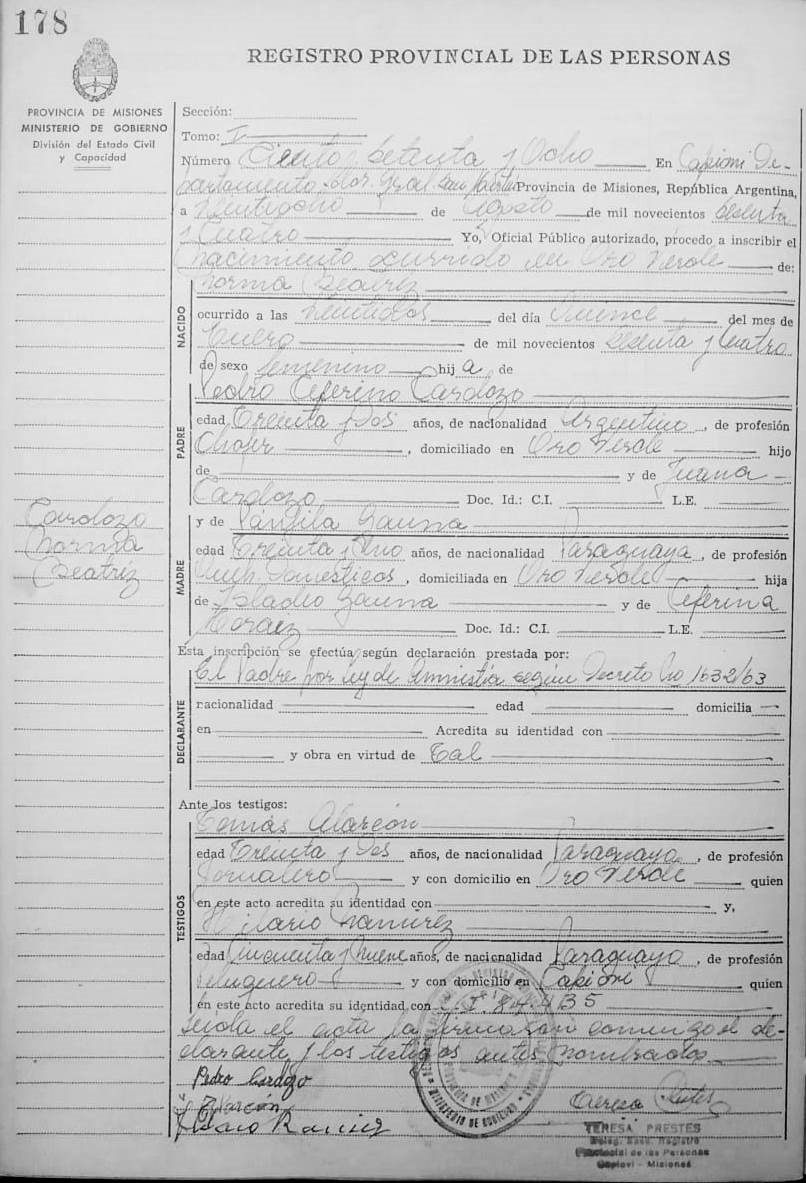 178
REGISTRO PROVINCIAL DE LAS PERSONAS
PROVINCIA DE MISIONES
MINISTERIO DE GOBIERNO
División del Estado Civil
y Capacidad
Cardozo
Norma
Beatriz
Sección:
Tomo: I
Número Ciento Setenta y Ocho En Capioví De-
partamento Ldor. Gral San Martín Provincia de Misiones, República Argentina,
a Veintiocho de Agosto de mil novecientos sesenta
y Cuatro Yo, Oficial Público autorizado, procedo a inscribir el
Nacimiento ocurrido en Oro Verde de:
NACIDO
Norma Beatriz
ocurrido a las Veintidos del día Quince del mes de
Enero de mil novecientos sesenta y Cuatro
de sexo femenino hija de
PADRE
Pedro Ceferino Cardozo
edad Treinta y Dos años, de nacionalidad Argentino, de profesión
Chofer, domiciliado en Oro Verde hijo
de y de Juana
Cardozo Doc. Id.: C.I. L.E.
MADRE
y de Gauna
edad Treinta y Uno años, de nacionalidad Paraguaya, de profesión
Queh. Domesticos, domiciliada en Oro Verde hija
de Gauna y de Ceferina
Doc. Id.: C.I. L.E.
Esta inscripción se efectúa según declaración prestada por:
DECLARANTE
El Padre por ley de Amnistía según Decreto No 1632/63
nacionalidad edad domicilia
en Acredita su identidad con
y obra en virtud de Tal
Ante los testigos:
TESTIGOS
Tomás Alarcón
edad Treinta y Dos años, de nacionalidad Paraguaya, de profesión
Jornalero y con domicilio en Oro Verde quien
en este acto acredita su identidad con y,
Hilario Ramirez
edad Cincuenta y Nueve años, de nacionalidad Paraguaya, de profesión
Peluquero y con domicilio en Capioví quien
en este acto acredita su identidad con C.I. 84.435
Leida el acta la firmaran conmigo el de-
clarante y los testigos antes nombrados
Pedro Cardozo
Alarcón
Hilario Ramirez
Teresa Prestes
TERESA PRESTES
Deleg. Registro
Provincial de las Personas
Capioví - Misiones
MINISTERIO DE GOBIERNO